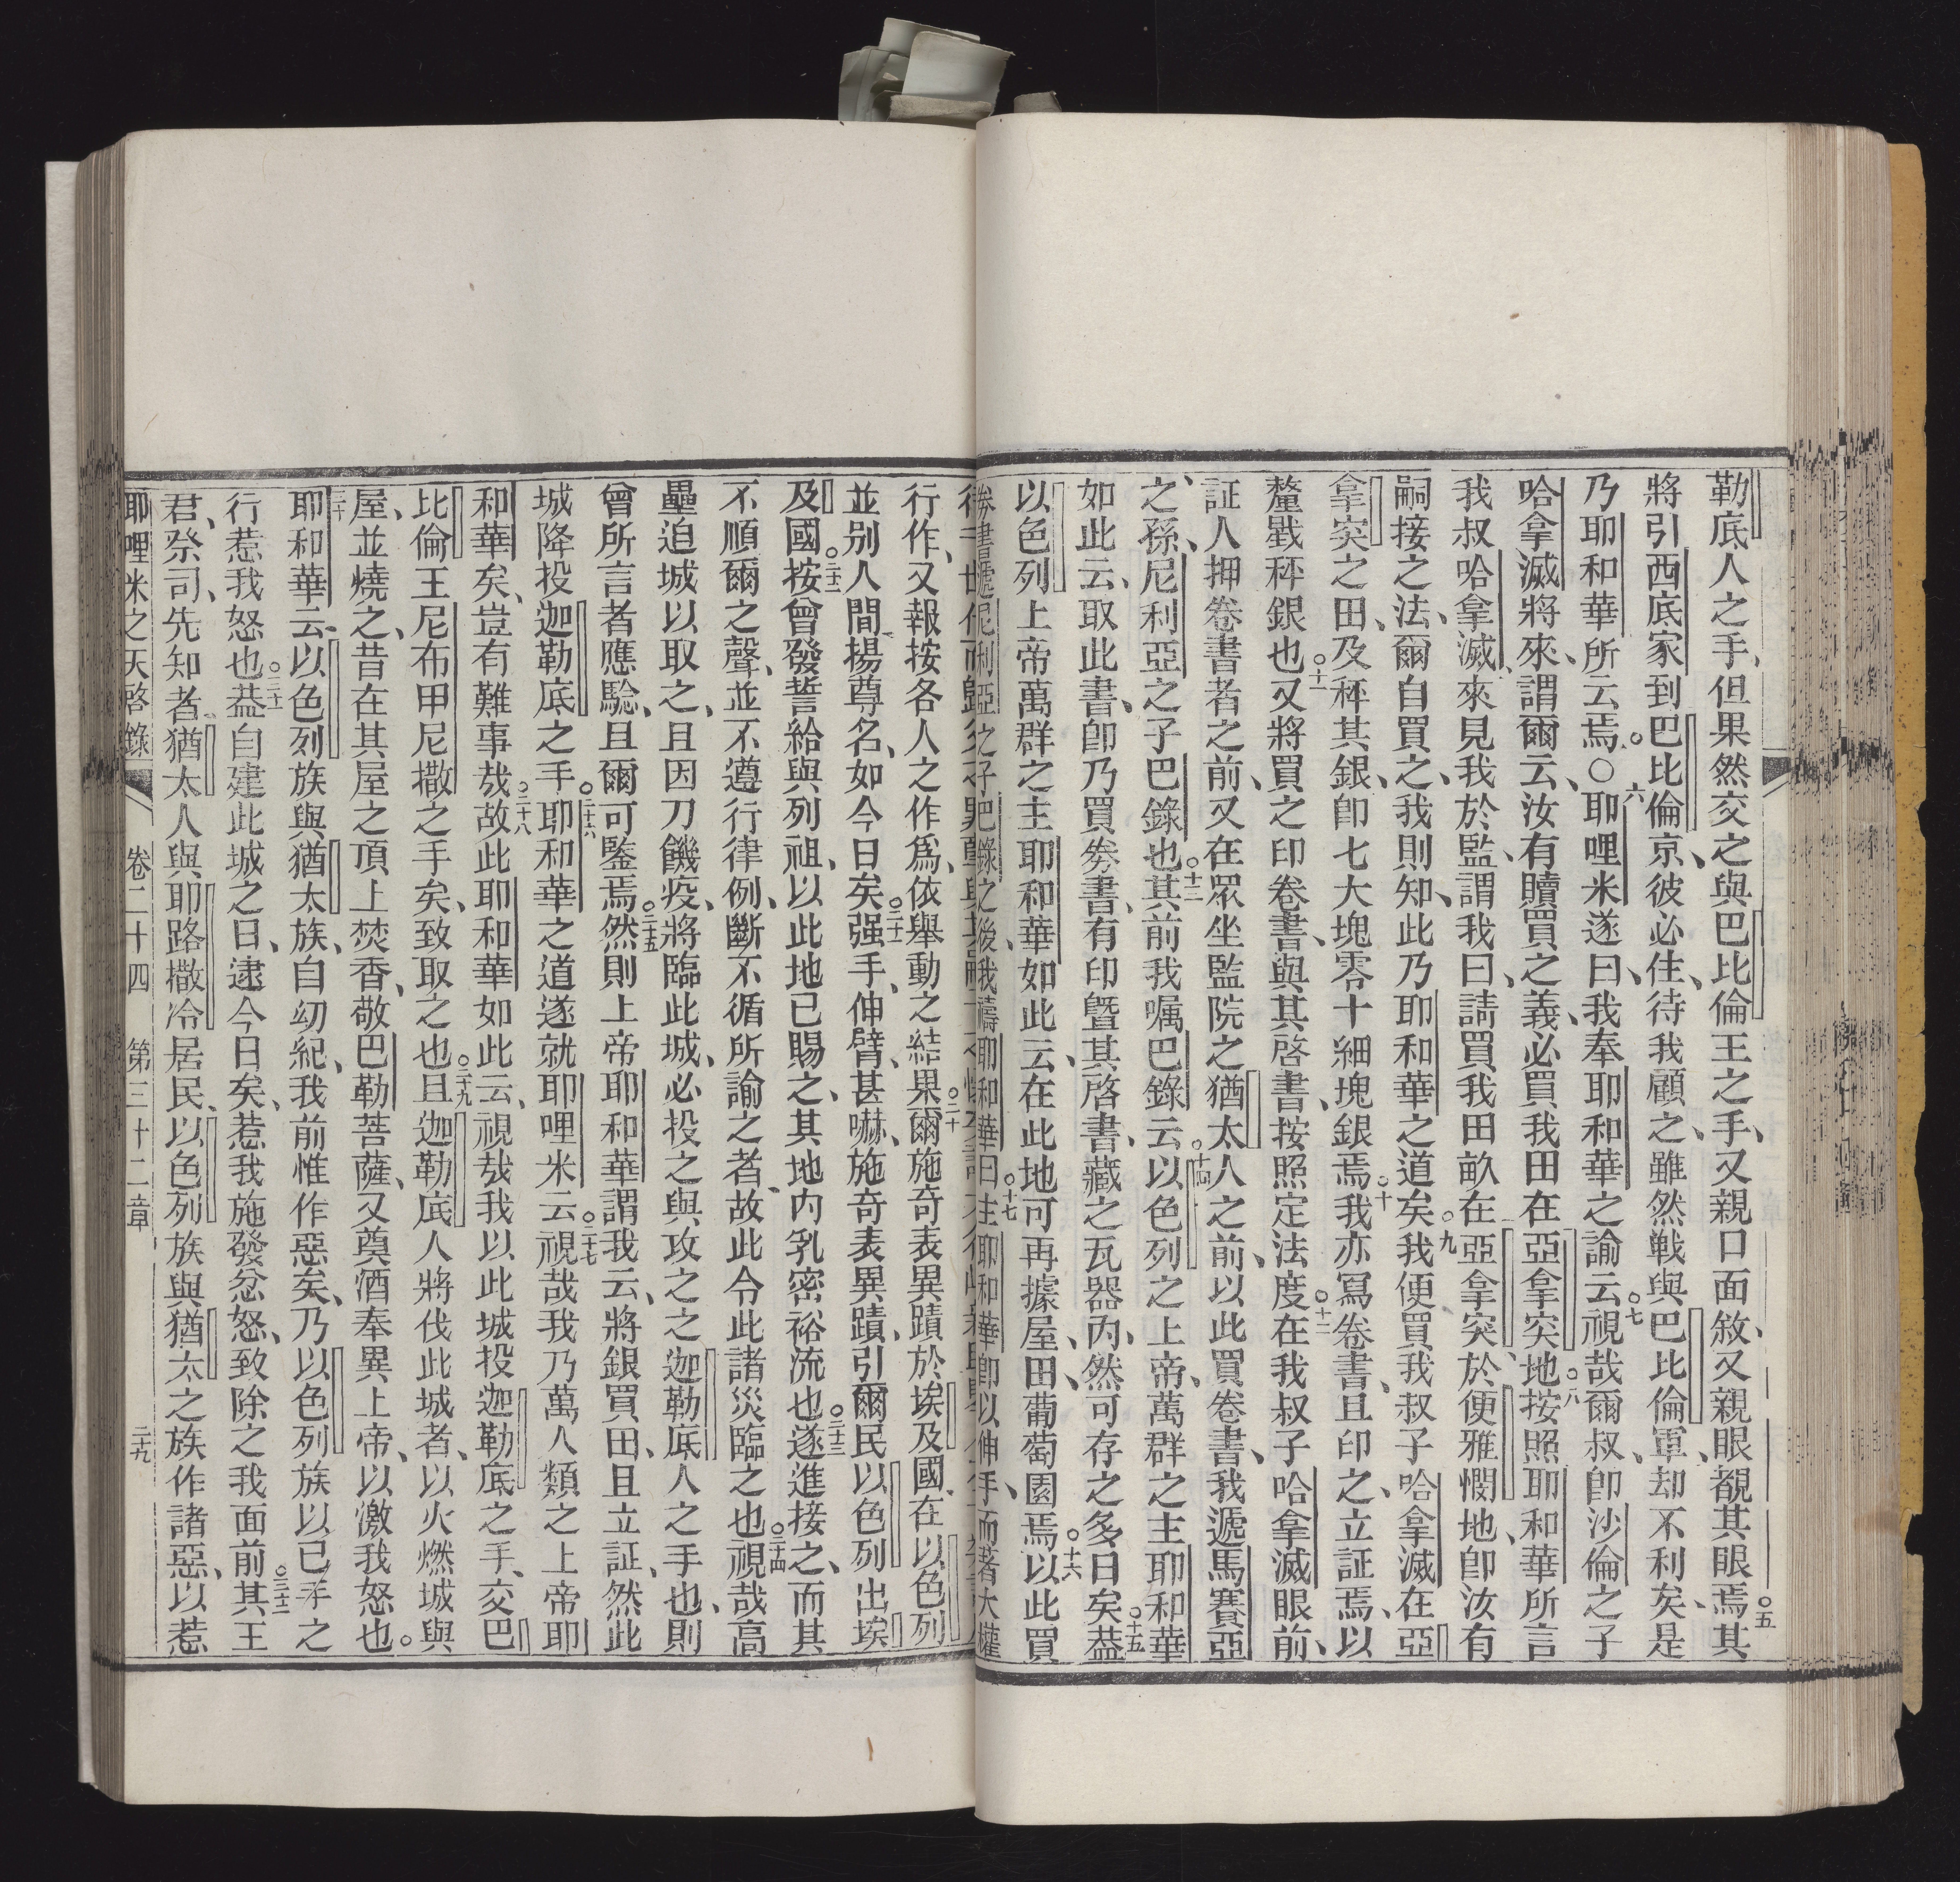 勒底人之手、但果然交之與巴比倫王之手、又親口面敘、又親眼覩其眼焉○五其
將引西底家到巴比倫京、彼必住、待我顧之、雖然戰與巴比倫軍、却不利矣、是
乃耶和華所云焉。○六耶哩米遂曰、我奉耶和華之諭云○七視哉爾叔、卽沙倫之子
哈拿滅將來、謂爾云、汝有贖買之義、必買我田在亞拿突地○八按照耶和華所言
我叔哈拿滅、來見我於監、謂我曰、請買我田畝在亞拿突、於便雅憫地、卽汝有
嗣接之法、爾自買之、我則知、此乃耶和華之道矣○九我便買我叔子哈拿滅在亞
拿突之田、及秤其銀、卽七大塊零十細塊銀焉○十我亦寫卷書、且印之、立証焉、以
釐戥秤銀也○十一又將買之印卷書、與其啓書、按照定法度○十二在我叔子哈拿滅眼前、
証人押卷書者之前、又在眾坐監院之猶太人之前、以此買卷書、我遞馬賽亞
之孫、尼利亞之子巴錄也○十三其前我囑巴錄云○十四以色列之上帝、萬群之主耶和華
如此云、取此書、卽乃買劵書、有印曁其啓書、藏之瓦器內、然可存之多日矣○十五蓋
以色列上帝萬群之主耶和華如此云、在此地可再據屋、田、葡萄園焉○十六以此買
劵書遞尼利亞之子巴錄之後、我禱耶和華曰○十七主耶和華卽以伸手、而著大權
行作、又報按各人之作爲、依舉動之結果○二十爾施奇表異蹟於埃及國、在以色列
並別人間揚尊名、如今日矣○二十一强手、伸臂、甚嚇、施奇表異蹟、引爾民以色列出埃
及國○二十二按曾發誓給與列祖、以此地已賜之、其地內乳密裕流也○二十三遂進接之、而其
不順爾之聲、並不遵行律例、斷不循所諭之者、故此令此諸災臨之也○二十四視哉高
壘迫城以取之、且因刀饑疫、將臨此城、必投之與攻之之迦勒底人之手也、則
曾所言者應騐、且爾可鑒焉○二十五然則上帝耶和華謂我云、將銀買田、且立証、然此
城降投迦勒底之手○二十六耶和華之道遂就耶哩米云○二十七視哉我乃萬人類之上帝耶
和華矣、豈有難事哉○二十八故此耶和華如此云、視哉我以此城投迦勒底之手、交巴
比倫王尼布甲尼撒之手矣、致取之也○二十九且迦勒底人將伐此城者、以火燃城與
屋、並燒之、昔在其屋之頂上焚香、敬巴勒菩薩、又奠酒奉異上帝、以激我怒也。
三十耶和華云、以色列族與猶太族、自幼紀、我前惟作惡矣、乃以色列族以已手之
行惹我怒也○三十一蓋自建此城之日、逮今日矣、惹我施發忿怒、致除之我面前○三十二其王
君、祭司、先知者、猶太人與耶路撒冷居民、以色列族與猶太之族作諸惡、以惹
耶哩米之天啓錄 卷二十四 第三十二章 二十九